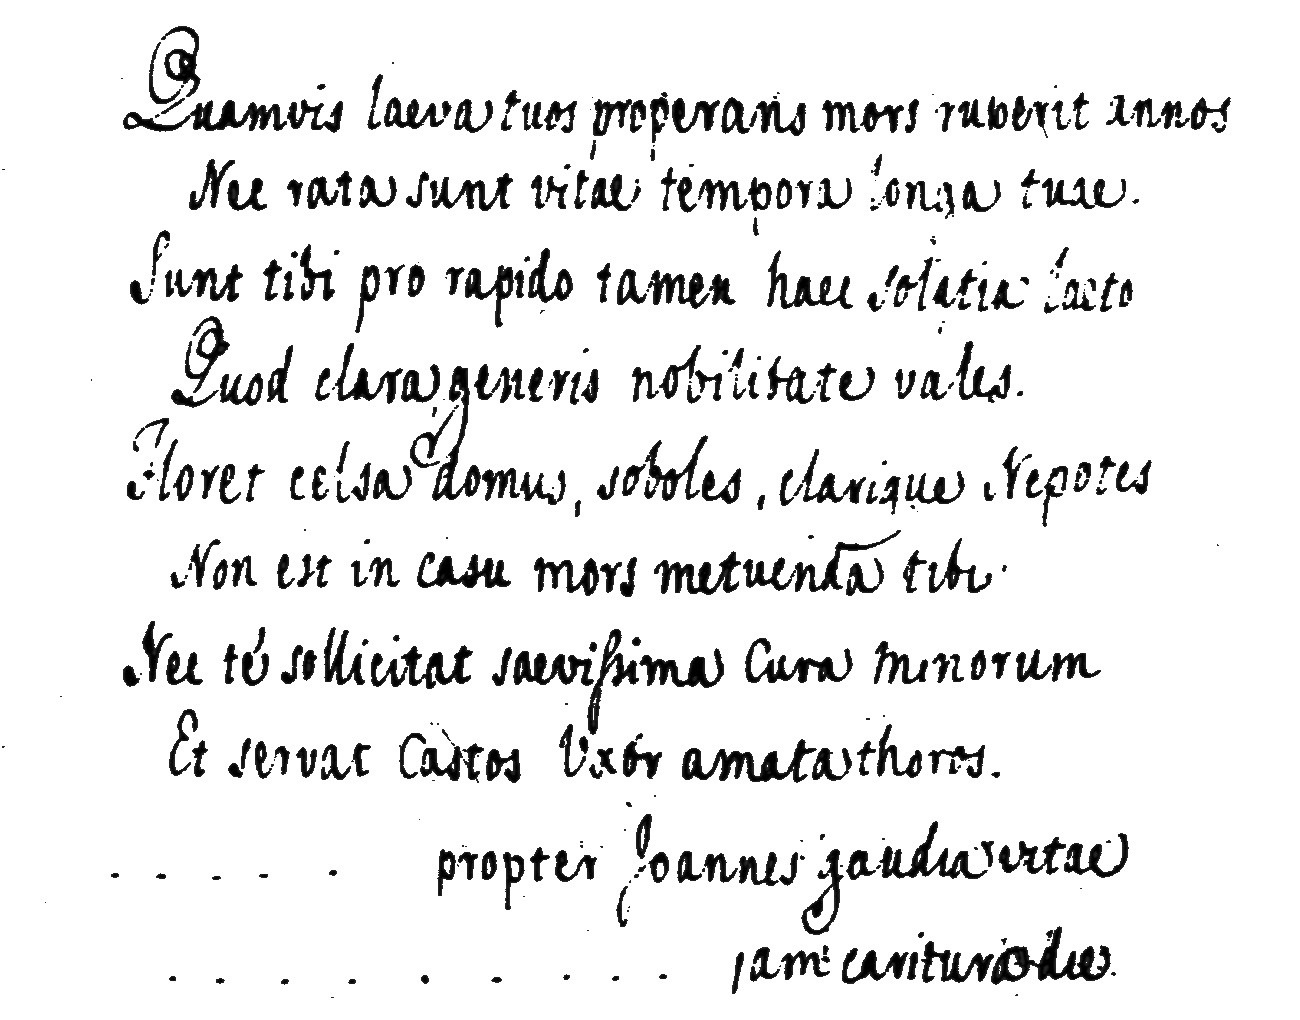 Quamvis laeva tuos properans mors ruperit annos
Nec rata sunt vitae tempora longa tuae.
Sunt tibi pro rapido tamen haec solatia laeto
Quod clara generis nobilitate vales.
Floret celsa domus, soboles, clarique Nepotes
Non est in casu mors metuenda tibi.
Nec te sollicitat saevissima Cura minorum
Et servat Castos Uxor amata thoros.
. . . . . propter Joannes gaudia vitae
. . . . . . . . . jam cariturio die.